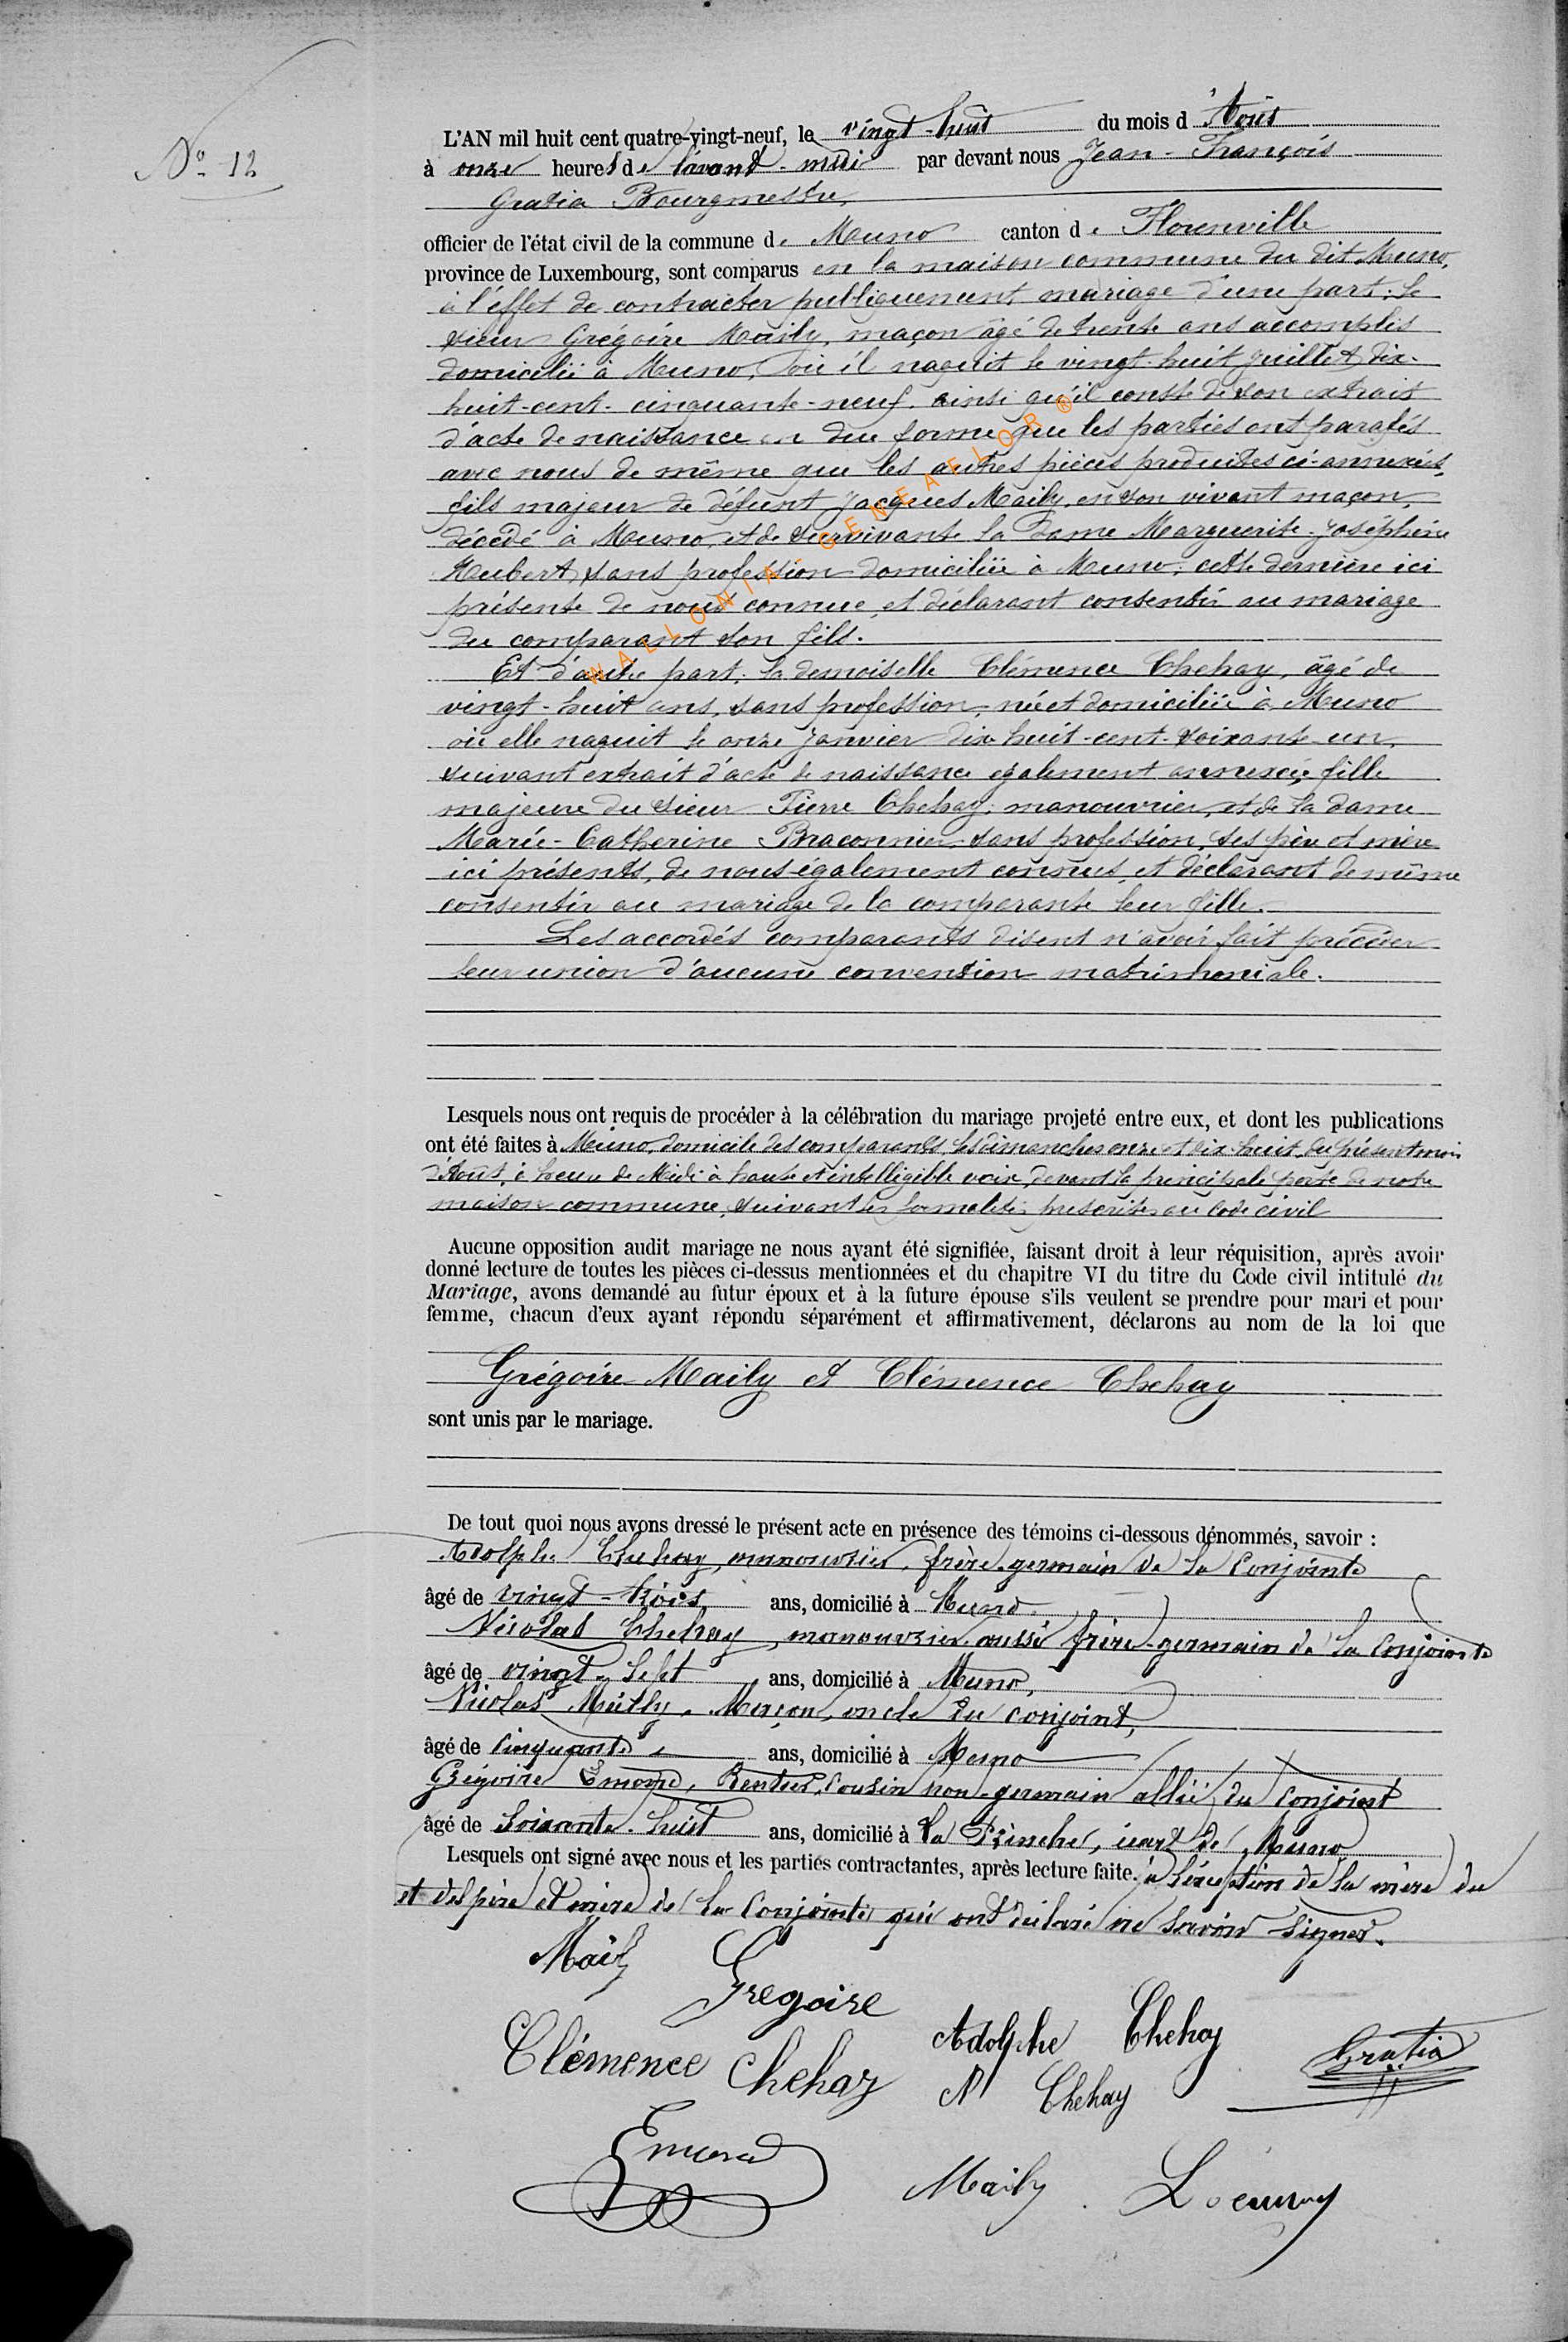 N° 12
L'AN mil huit cent quatre-vingt-neuf, le vingt-huit du mois d'Août
à onze heures de l'avant-midi par devant nous Jean-François
Gratia Bourgmestre,
officier de l'état civil de la commune de Muno canton de Florenville
province de Luxembourg, sont comparus en la maison commune du dit Muno,
à l'effet de contracter publiquement mariage d'une part: le
sieur Grégoire Maily, maçon âgé de trente ans accomplis
domicilié à Muno, où il naquit le vingt-huit juillet dix-
huit-cent-cinquante-neuf. ainsi qu'il conste de son extrait
d'acte de naissance en due forme que les parties ont parafés
avec nous de même que les autres pièces produites ci-annexées,
fils majeur de défunt Jacques Maily, en son vivant maçon,
décédé à Muno, et de survivante la dame Marguerite-Joséphine
Hubert, sans profession domiciliée à Muno; cette dernière ici
présente de nous connue, et déclarant consentir au mariage
du comparant son fils.
Et d'autre part; la demoiselle Clémence Chehay, âgé de
vingt-huit ans, sans profession, née et domiciliée à Muno
où elle naquit le onze Janvier dix-huit-cent-soixante-un,
suivant extrait d'acte de naissance également annexée, fille
majeure du sieur Pierre Chehay, manouvrier, et de la dame
Marie-Catherine Braconnier sans profession, ses père et mère
ici présents, de nous également connus, et déclarant de même
consentir au mariage de la comparante leur fille.
Les accordés comparants disent n'avoir fait précéder
leur union d'aucune convention matrimoniale.
Lesquels nous ont requis de procéder à la célébration du mariage projeté entre eux, et dont les publications
ont été faites à Muno, domicile des comparants, les dimanches onze et dix-huit du présent mois
d'Août, à heure de Midi à haute et intelligible voix, devant la principale porte de notre
maison commune, suivant les formalités prescrites au Code civil
Aucune opposition audit mariage ne nous ayant été signifiée, faisant droit à leur réquisition, après avoir
donné lecture de toutes les pièces ci-dessus mentionnées et du chapitre VI du titre du Code civil intitulé du
Mariage, avons demandé au futur époux et à la future épouse s'ils veulent se prendre pour mari et pour
femme, chacun d'eux ayant répondu séparément et affirmativement, déclarons au nom de la loi que
Grégoire Maily et Clémence Chehay
sont unis par le mariage.
De tout quoi nous avons dressé le présent acte en présence des témoins ci-dessous dénommés, savoir :
Adolphe Chehay, manouvrier, frère germain de la Conjointe
âgé de vingt-trois ans, domicilié à Muno.
Nicolas Chehay, manouvrier aussi frère-germain de la Conjointe
âgé de vingt-sept ans, domicilié à Muno,
Nicolas Maily, Maçon, oncle du conjoint,
âgé de Cinquante ans, domicilié à Muno
Grégoire Emond, Rentier, Cousin non-germain allié du Conjoint
âgé de Soixante-huit ans, domicilié à La écart de Muno
Lesquels ont signé avec nous et les parties contractantes, après lecture faite. à l'éxception de la mère du
et des père et mère de la Conjointe qui ont déclaré ne savoir signer.
Maily Gregoire
Clémence Chehay Adolphe Chehay Gratia
N Chehay
Emond Maily
WALLONIA-GENEALOR®